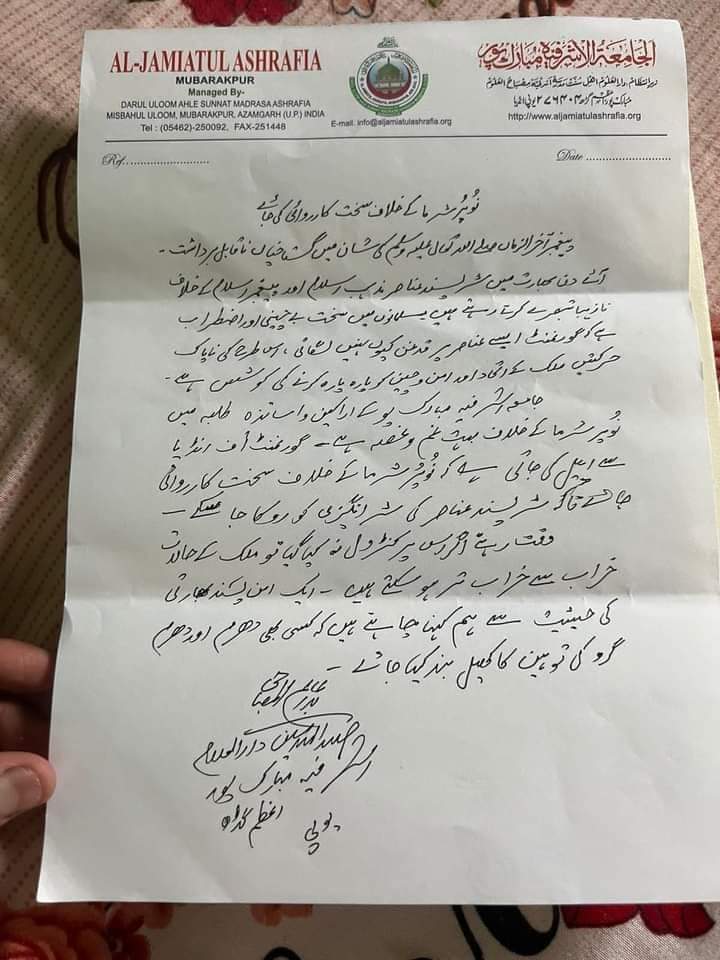 AL-JAMIATUL ASHRAFIA
MUBARAKPUR
Managed By-
DARUL ULOOM AHLE SUNNAT MADRASA ASHRAFIA
MISBAHUL ULOOM, MUBARAKPUR, AZAMGARH (U.P.) INDIA
Tel : (05462)-250092, FAX-251448
E-mail. info@aljamiatulashrafia.org
الجامعۃ الاشرفیہ مبارکپور
زیر انتظام: دارالعلوم اہل سنت مدرسہ اشرفیہ مصباح العلوم
مبارکپور اعظم گڑھ یوپی ۲۷۶۴۰۴ انڈیا
http://www.aljamiatulashrafia.org
Ref........................
Date ........................
نُوپُر شرما کے خلاف سخت کارروائی کی جائے
پیغمبر آخر الزماں صلی اللہ تعالیٰ علیہ وسلم کی شان میں گستاخیاں ناقابل برداشت۔
آئے دن بھارت میں شر پسند عناصر مذہب اسلام اور پیغمبر اسلام کے خلاف
نازیبا تبصرے کرتے رہتے ہیں مسلمانوں میں سخت بے چینی اور اضطراب
ہے کہ گورنمنٹ ایسے عناصر پر قدغن کیوں نہیں لگاتی، اس طرح کی ناپاک
حرکتیں ملک کے اتحاد اور امن و چین کو پارہ پارہ کرنے کی کوشش ہے۔
جامعہ اشرفیہ مبارک پور کے اراکین و اساتذہ طلبہ میں
نُوپُر شرما کے خلاف بہت غم و غصہ ہے۔ گورنمنٹ آف انڈیا
سے اپیل کی جاتی ہے کہ نُوپُر شرما کے خلاف سخت کارروائی کی
جائے تاکہ شر پسند عناصر کی شر انگیزی کو روکا جا سکے۔
وقت رہتے اگر اس پر کنٹرول نہ کیا گیا تو ملک کے حالات
خراب سے خراب تر ہو سکتے ہیں۔ ایک امن پسند بھارتی
کی حیثیت سے ہم کہنا چاہتے ہیں کہ کسی بھی دھرم اور دھرم
گرو کی توہین کا کھیل بند کیا جائے۔
بدر عالم المصباحی
صدر المدرسین دارالعلوم
اشرفیہ مبارک پور
اعظم گڑھ
یوپی